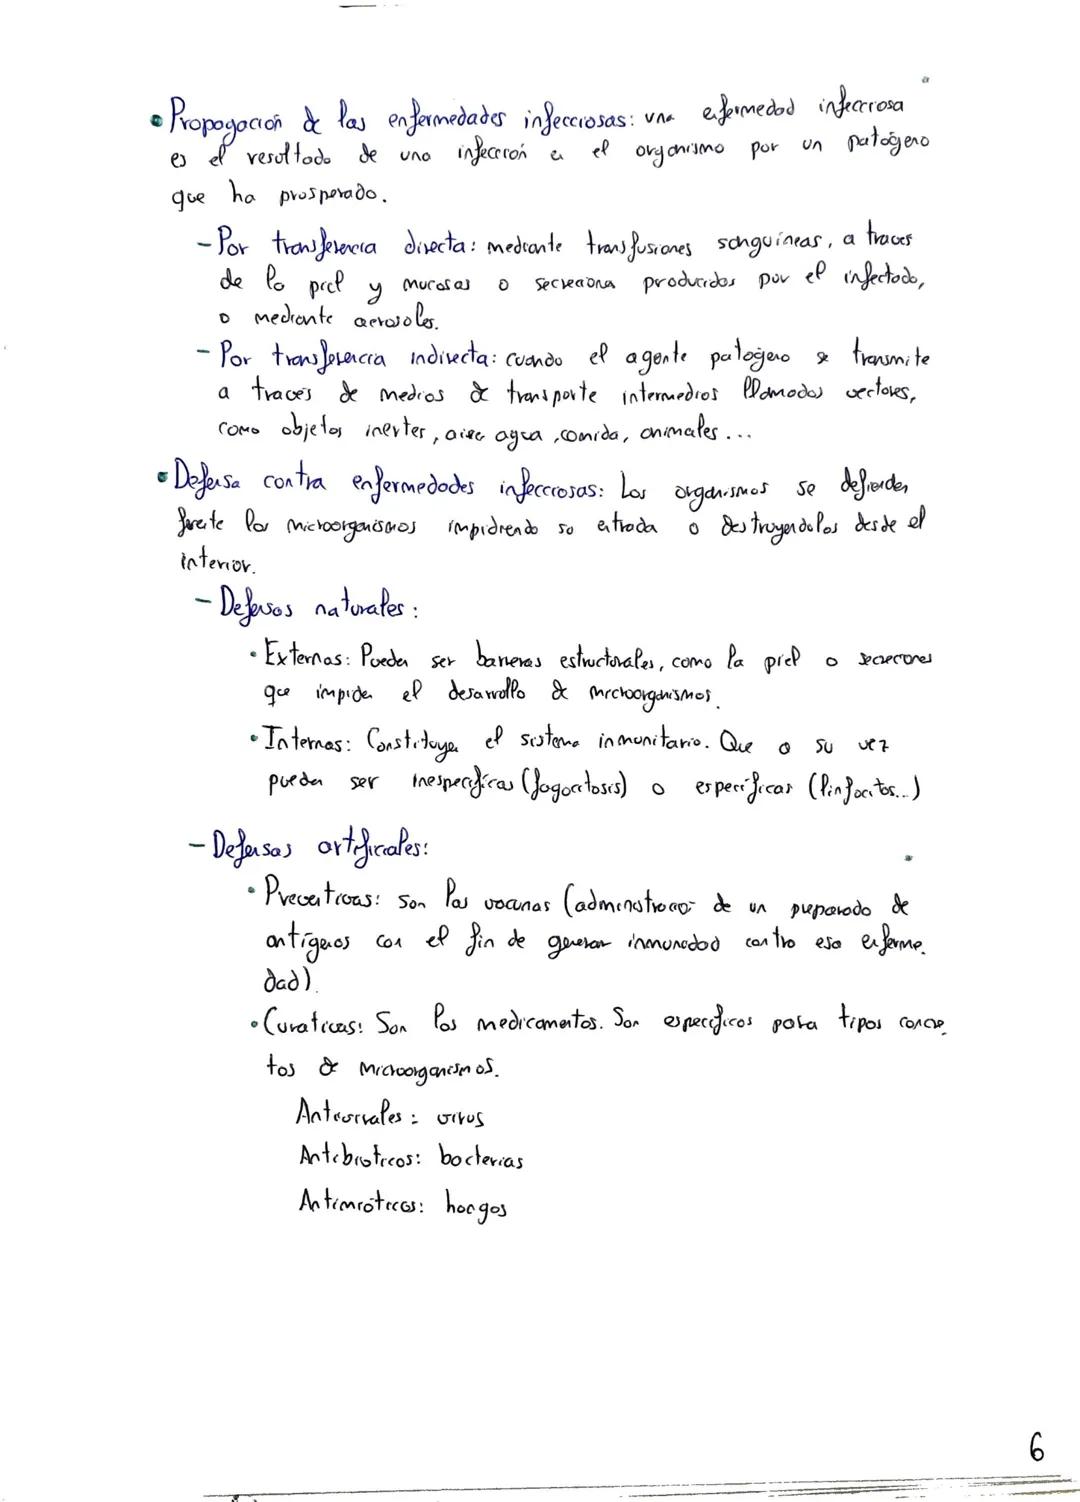 • Propagación de las enfermedades infecciosas: una enfermedad infecciosa
es el resultado de una infección en el organismo por un patógeno
que ha prosperado.
- Por transferencia directa: mediante transfusiones sanguíneas, a traves
de la piel y mucosas o secreciones producidas por el infectado,
o mediante aerosoles.
- Por transferencia indirecta: cuando el agente patógeno se transmite
a traces de medios de transporte intermedios llamados vectores,
como objetos inertes, aire agua, comida, animales...
• Defensa contra enfermedades infecciosas: Los organismos se defienden
frente los microorganismos impidiendo su entrada o destruyendolos desde el
interior.
- Defensas naturales:
• Externas: Pueden ser barreras estructurales, como la piel o secreciones
que impiden el desarrollo de microorganismos.
• Internas: Constituyen el sistema inmunitario. Que a su vez
pueden ser inespecíficas (fagocitosis) o específicas (linfocitos...)
- Defensas artificiales:
• Preventivas: son las vacunas (administración de un preparado de
antígenos con el fin de generar inmunidad contra esa enferme-
dad).
• Curativas: Son los medicamentos. Son específicos para tipos concre-
tos de microorganismos.
Antivirales: virus
Antibióticos: bacterias
Antimióticos: hongos
6